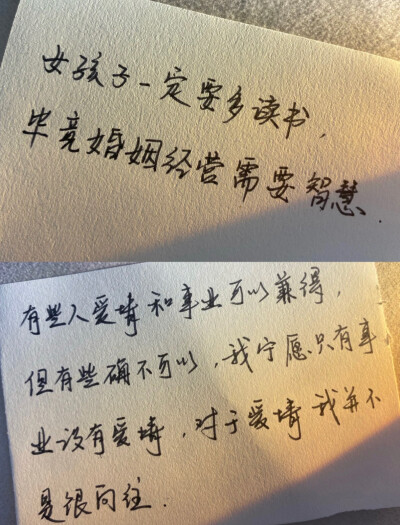 女孩子一定要多读书，
毕竟婚姻经营需要智慧．
有些人爱情和事业可以兼得，
但有些确不可以，我宁愿只有事
业没有爱情，对于爱情我并不
是很向往．